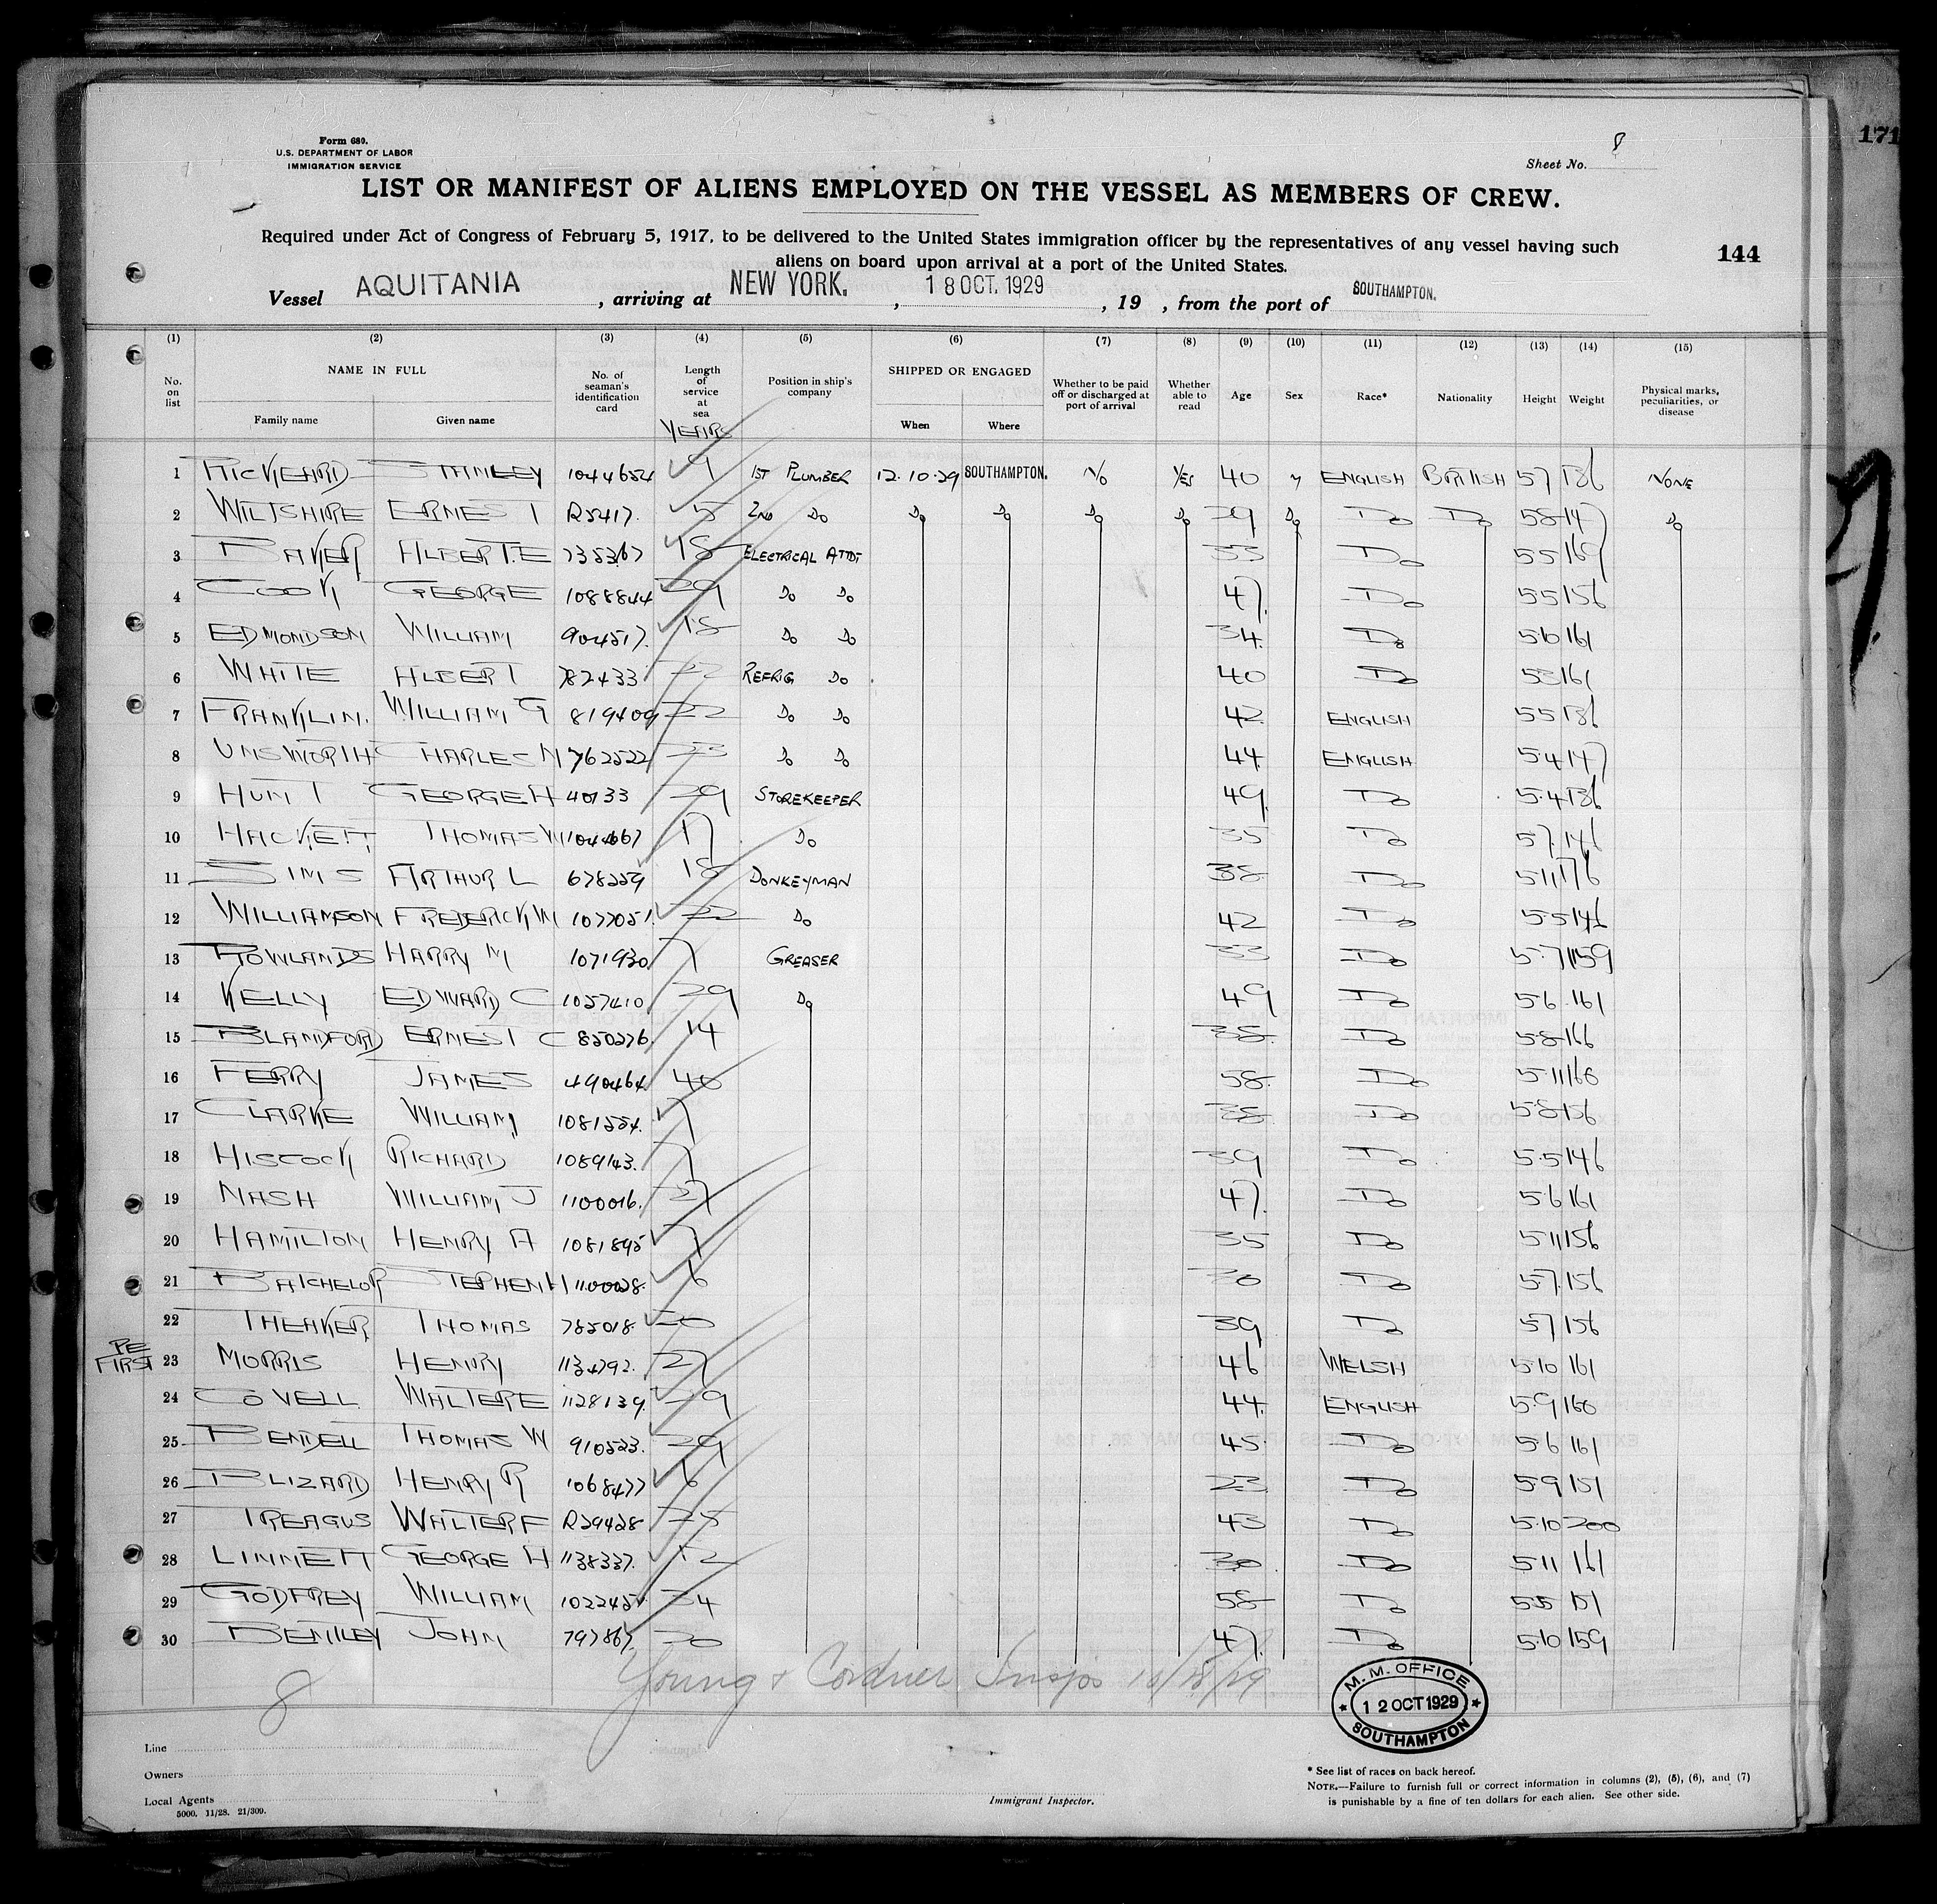 171
Form 680.
U.S. DEPARTMENT OF LABOR
IMMIGRATION SERVICE
Sheet No. 8
LIST OR MANIFEST OF ALIENS EMPLOYED ON THE VESSEL AS MEMBERS OF CREW.
Required under Act of Congress of February 5, 1917, to be delivered to the United States immigration officer by the representatives of any vessel having such
aliens on board upon arrival at a port of the United States.
144
Vessel AQUITANIA, arriving at NEW YORK., 18 OCT. 1929, 19 , from the port of SOUTHAMPTON.
(1) (2) (3) (4) (5) (6) (7) (8) (9) (10) (11) (12) (13) (14) (15)
No. on list NAME IN FULL Family name Given name No. of seaman's identification card Length of service at sea YEARS Position in ship's company SHIPPED OR ENGAGED When Where Whether to be paid off or discharged at port of arrival Whether able to read Age Sex Race* Nationality Height Weight Physical marks, peculiarities, or disease
1 RICKEARD STANLEY 1044654 9 1ST PLUMBER 12.10.29 SOUTHAMPTON. NO YES 40 M ENGLISH BRITISH 57 136 NONE
2 WILTSHIRE ERNEST R5417. 5 2ND DO DO DO DO DO 29 DO DO DO 58 147 DO
3 BAKER ALBERT.E 735367 18 ELECTRICAL ATTDT 33 DO 55 169
4 COOK GEORGE 1088844 29 DO DO 47. DO 55 156
5 EDMONDSON WILLIAM 904517. 18 DO DO 34. DO 5.10 161
6 WHITE ALBERT 782433 22 REFRIG DO 40 DO 53 161
7 FRANKLIN. WILLIAM G 819409 22 DO DO 42 ENGLISH 55 136
8 UNSWORTH CHARLES N 762522 23 DO DO 44. ENGLISH 5.4 147
9 HUNT GEORGE H 40133 29 STOREKEEPER 49 DO 5.4 136
10 HACKETT THOMAS W 1044667 17 DO 35 DO 57. 146
11 SIMS ARTHUR L 678259 18 DONKEYMAN 38 DO 5.11 176
12 WILLIAMSON FREDERICK W 1077051. 22 DO 42 DO 5.5 146
13 ROWLANDS HARRY M 1071930 7 GREASER 33 DO 5.7 159
14 KELLY EDWARD C 1057410 29 DO 49 DO 5.6 161
15 BLANDFORD ERNEST C 850276. 14 38 DO 5.8 166
16 FERRY JAMES 490464 40 58. DO 5.11 160
17 CLARKE WILLIAM 1081554. 7 38 DO 5.8 156
18 HISCOCK RICHARD 1089143. 7 39 DO 5.5 146
19 NASH WILLIAM J 1100016. 27 47. DO 5.6 161
20 HAMILTON HENRY A 1081895 7 35 DO 5.11 156
21 BATCHELOR STEPHEN H 1100028. 6 30 DO 5.7. 156
22 THEAKER THOMAS 785018. 20 39 DO 57 156
PE FIRST
23 MORRIS HENRY 1134792. 27 46 WELSH 5.10 161
24 COVELL WALTER E 1128139. 29 44. ENGLISH 5.9 160
25 BENDELL THOMAS W 910523. 29 45. DO 5.6 161
26 BLIZARD HENRY R 1068477 6 23 DO 5.9 151
27 TREAGUS WALTER F R29428 25 43 DO 5.10 200
28 LINNETT GEORGE H 1138337. 12 30 DO 5.11 161
29 GODFREY WILLIAM 1022451 34 58 DO 5.5 151
30 BENTLEY JOHN 797867. 30 47. DO 5.10 159
8
Young & Cordner Insps 10/18/29
M. M. OFFICE
12 OCT 1929
SOUTHAMPTON
Line
Owners
Local Agents
5000. 11/28. 21/309.
Immigrant Inspector.
* See list of races on back hereof.
NOTE.—Failure to furnish full or correct information in columns (2), (5), (6), and (7)
is punishable by a fine of ten dollars for each alien. See other side.